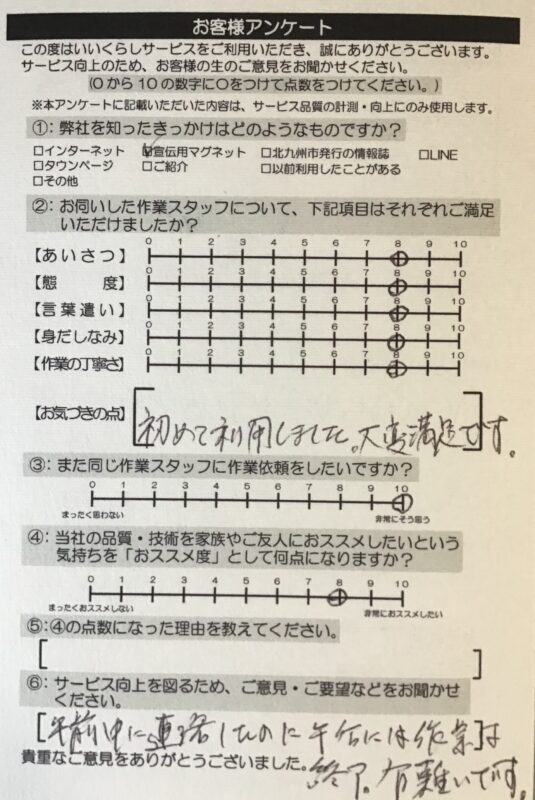 お客様アンケート
この度はいいくらしサービスをご利用いただき、誠にありがとうございます。
サービス向上のため、お客様の生のご意見をお聞かせください。
(0から10の数字に○をつけて点数をつけてください。)
※本アンケートに記載いただいた内容は、サービス品質の計測・向上にのみ使用します。
①：弊社を知ったきっかけはどのようなものですか？
□インターネット ☑宣伝用マグネット □北九州市発行の情報誌 □LINE
□タウンページ □ご紹介 □以前利用したことがある
□その他
②：お伺いした作業スタッフについて、下記項目はそれぞれご満足
いただけましたか？
0 1 2 3 4 5 6 7 8 9 10
【あいさつ】
0 1 2 3 4 5 6 7 8 9 10
【態度】
0 1 2 3 4 5 6 7 8 9 10
【言葉遣い】
0 1 2 3 4 5 6 7 8 9 10
【身だしなみ】
0 1 2 3 4 5 6 7 8 9 10
【作業の丁寧さ】
【お気づきの点】
初めて利用しました。大変満足です。
③：また同じ作業スタッフに作業依頼をしたいですか？
0 1 2 3 4 5 6 7 8 9 10
まったく思わない 非常にそう思う
④：当社の品質・技術を家族やご友人におススメしたいという
気持ちを「おススメ度」として何点になりますか？
0 1 2 3 4 5 6 7 8 9 10
まったくおススメしない 非常におススメしたい
⑤：④の点数になった理由を教えてください。
⑥：サービス向上を図るため、ご意見・ご要望などをお聞かせ
ください。
午前中に連絡したのに午后には作業は
貴重なご意見をありがとうございました。
終了。有難いです。